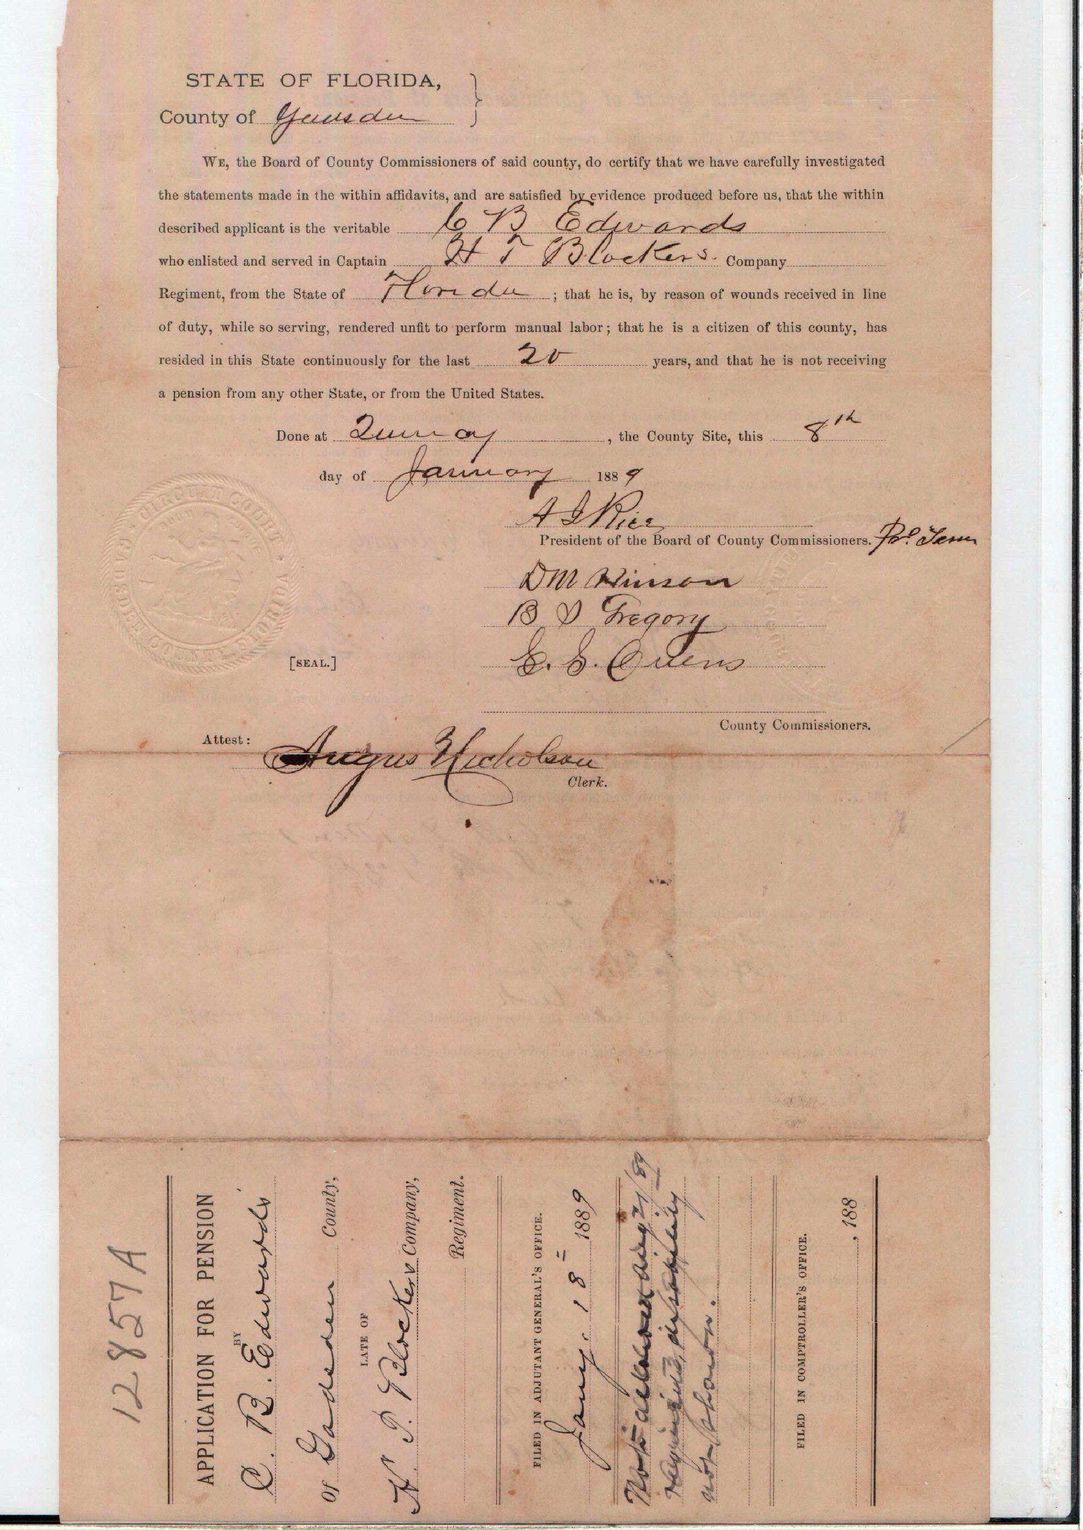 STATE OF FLORIDA,
County of Gadsden
WE, the Board of County Commissioners of said county, do certify that we have carefully investigated
the statements made in the within affidavits, and are satisfied by evidence produced before us, that the within
described applicant is the veritable C B Edwards
who enlisted and served in Captain H T Blockers. Company
Regiment, from the State of Florida ; that he is, by reason of wounds received in line
of duty, while so serving, rendered unfit to perform manual labor; that he is a citizen of this county, has
resided in this State continuously for the last 20 years, and that he is not receiving
a pension from any other State, or from the United States.
Done at Quincy , the County Site, this 8th
day of January 1889
A J Rice
President of the Board of County Commissioners. Pro Tem
D M Hinson
B Gregory
Owens
[SEAL.]
County Commissioners.
Attest: Angus Nicholson
Clerk.
GADSDEN COUNTY FLORIDA
CIRCUIT COURT
12857A
APPLICATION FOR PENSION
BY
C. B. Edwards
Of Gadsden County,
LATE OF
Blockers Company,
Regiment.
FILED IN ADJUTANT GENERAL'S OFFICE.
Jany. 18 1889
Not 21/89
required, disability
not shown.
FILED IN COMPTROLLER'S OFFICE.
, 188